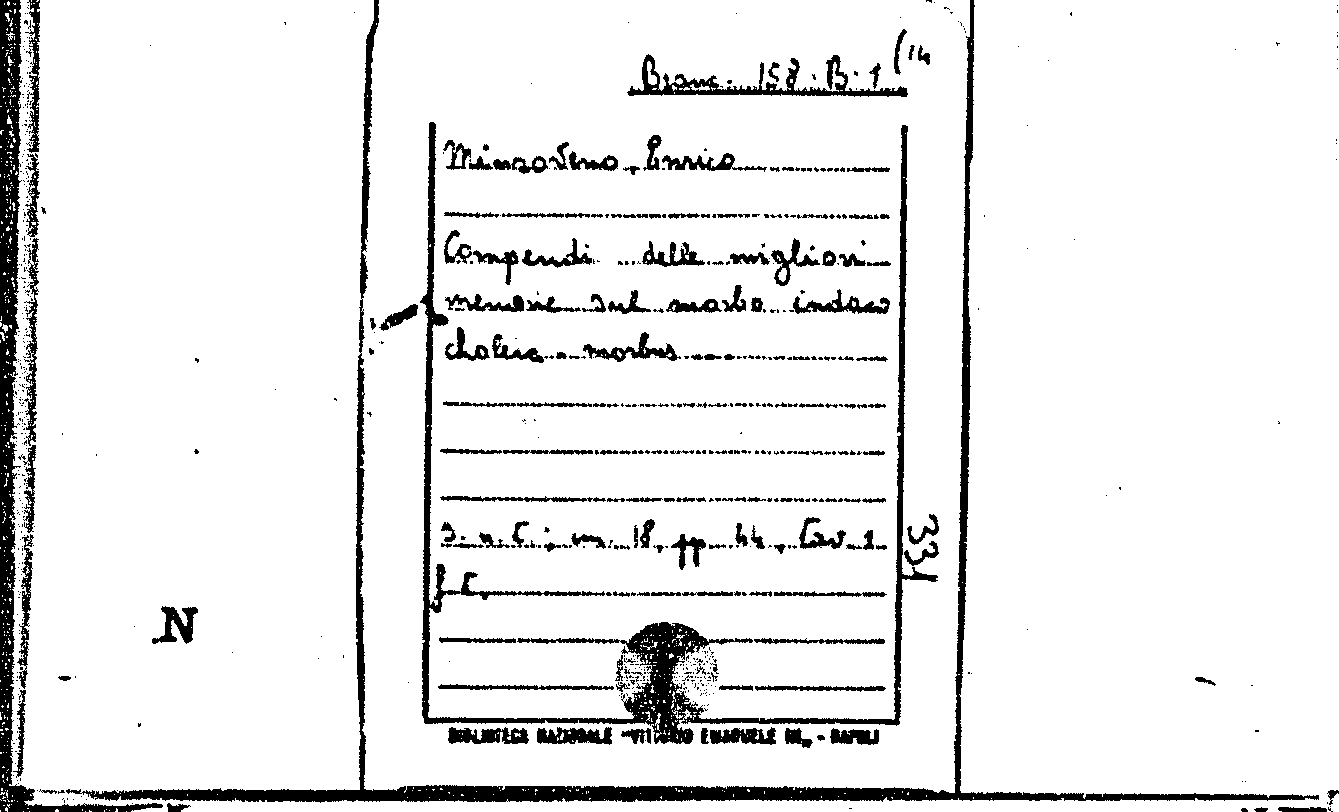 Branc. 158. B. 1 (14
Minzoteno, Enrico
Compendi delle migliori
memorie sul morbo indaco
cholera - morbus
s. n. t.; in. 18, pp. 44, tav. 1
f. t.
331
N
BIBLIOTECA NAZIONALE "VITTORIO EMANUELE III„ - NAPOLI